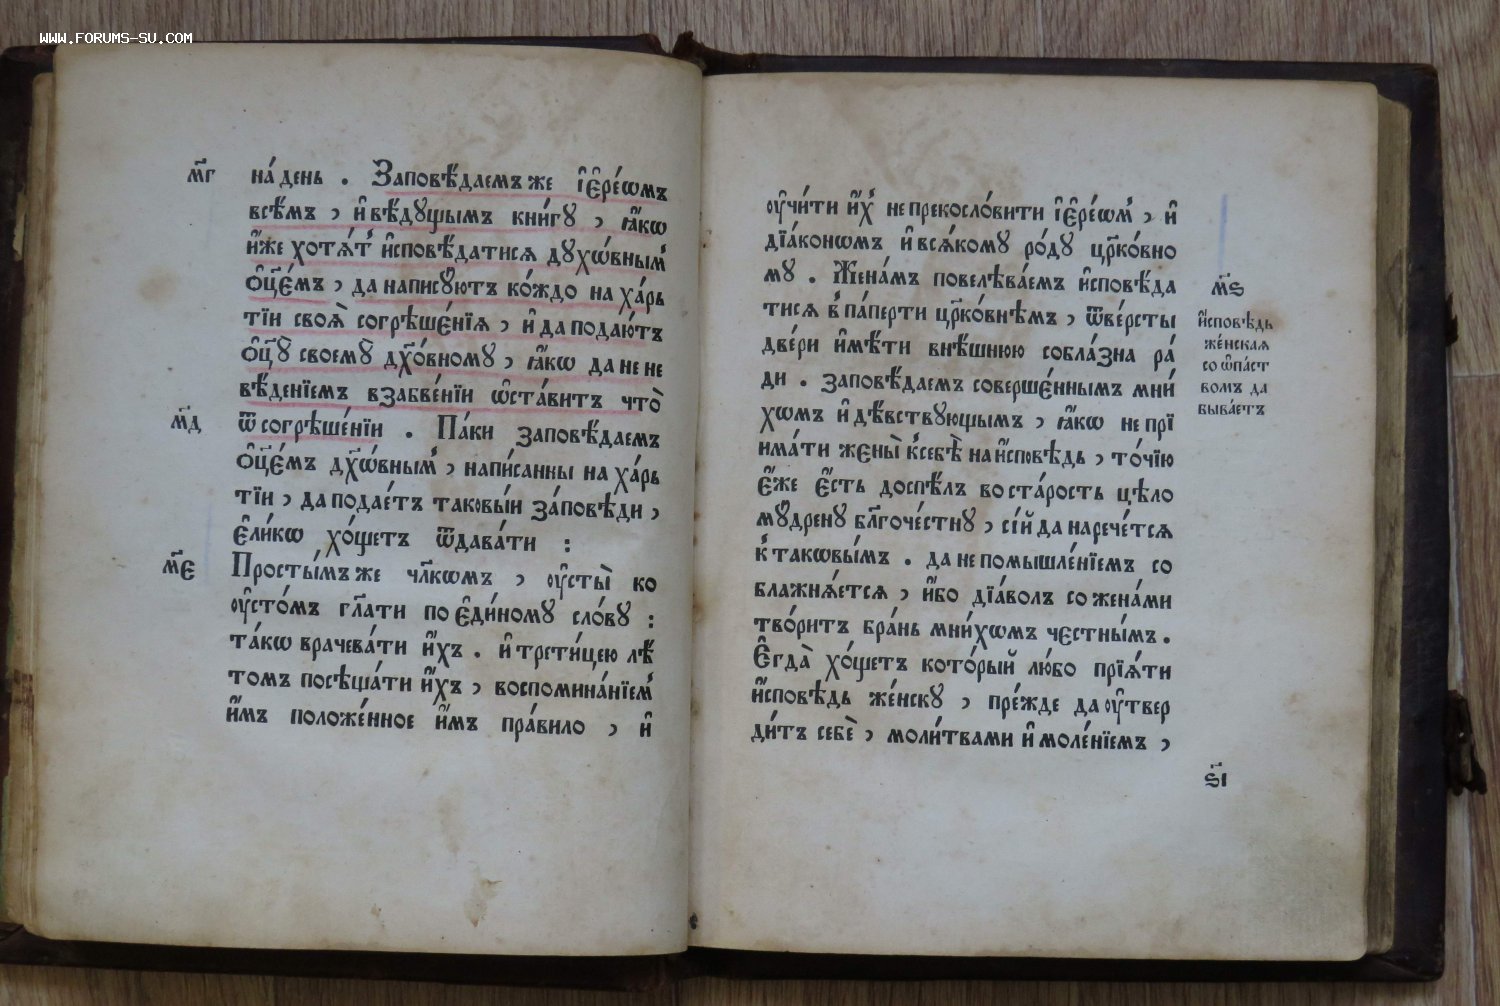 WWW.FORUMS-SU.COM
м҃г
на́ день . Заповѣ́даемъ же і҆ере́ѡмъ
всѣ́мъ , и҆ вѣ́дꙋщымъ кни́гꙋ , ꙗ҆́кѡ
и҆́же хотѧ́т̾ и҆сповѣ́датисѧ дꙋхѡ́вным̾
ѻ҆ц҃є́мъ , да напи́сꙋютъ ко́ждо на ха́рь
тїи своѧ̀ согрѣшє́нїѧ , и҆ да подаю́тъ
ѻ҆ц҃ꙋ̀ своемꙋ̀ дх҃о́вномꙋ , ꙗ҆́кѡ да не не
вѣ́денїемъ в забве́нїи ѡ҆ста́витъ что̀
м҃д
ѿ согрѣше́нїи . Па́ки заповѣ́даемъ
ѻ҆ц҃є́мъ дх҃ѡ́вным̾ , напи́санны на ха́рь
тїи , да подае́тъ таковы́и за́повѣди ,
є҆ли́кѡ хо́щетъ ѿдава́ти :
м҃є
Просты́мъ же чл҃кѡмъ , ᲂу҆сты̀ ко
ᲂу҆сто́мъ гл҃ати по є҆ди́номꙋ сло́вꙋ :
та́кѡ врачева́ти и҆́хъ . и҆ трети́цею лѣ́
томъ посѣща́ти и҆́хъ , воспомина́нїем̾
и҆́мъ положе́нное и҆́мъ пра́вило , и҆
ᲂу҆чи́ти и҆́х̾ не прекосло́вити і҆ере́ѡм̾ , и҆
дїа́конѡмъ и҆ всѧ́комꙋ ро́дꙋ цр҃ко́вно
м҃ѕ
мꙋ . Жена́мъ повелѣва́ем и҆сповѣ́да
тисѧ в̾ па́перти цр҃ко́внѣмъ , ѿве́рсты
две́ри и҆мѣ́ти внѣ́шнюю собла́зна ра́
ди . заповѣ́даемъ соверше́ннымъ мни́
хѡмъ и҆ дѣ́вствꙋющымъ , ꙗ҆́кѡ не прї
има́ти жєны̀ к̾ себѣ̀ на и҆́сповѣдь , то́чїю
є҆́же є҆́сть доспѣ́лъ во ста́рость цѣло
мꙋ́дренꙋ бл҃гоче́стнꙋ , сі́й да нарече́тсѧ
к̾ такѡвы́мъ . да не помышле́нїемъ со
блажнѧ́етсѧ , и҆́бо дїа́волъ со жена́ми
тво́ритъ бра́нь мни́хѡмъ че́стнымъ .
Є҆гда̀ хо́щетъ кото́рый лю́бо прїѧ́ти
и҆́сповѣдь же́нскꙋ , пре́жде да ᲂу҆твер
ди́тъ себѐ , моли́твами и҆ моле́нїемъ ,
и҆сповѣ́дь
же́нская
со ѡ҆па́ст
вомъ да
быва́етъ
ѕ҃і